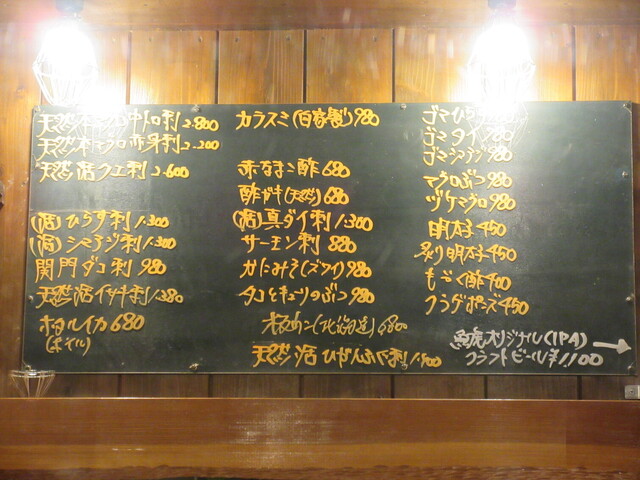 天然本マグロ中トロ刺 2.800
天然本マグロ赤身刺 2.200
天然活クエ刺 2.600
(活)ひらす刺 1.300
(活)シマアジ刺 1.300
関門ダコ刺 980
天然活イサキ刺 1.380
ホタルイカ 680
(ボイル)
カラスミ(自家製) 980
赤なまこ酢 680
酢ガキ(天然) 680
(活)真ダイ刺 1.300
サーモン刺 880
かにみそ(ズワイ) 980
タコときゅうりのぶつ 980
(北海道) 6800
天然活 刺 1.900
ゴマひらす 980
ゴマタイ 980
ゴマシマアジ 980
マグロぶつ 980
ヅケマグロ 980
明太子 450
炙り明太子 450
もずく酢 400
クラゲポンズ 450
魚虎オリジナル(IPA) →
クラフトビール ¥1,100